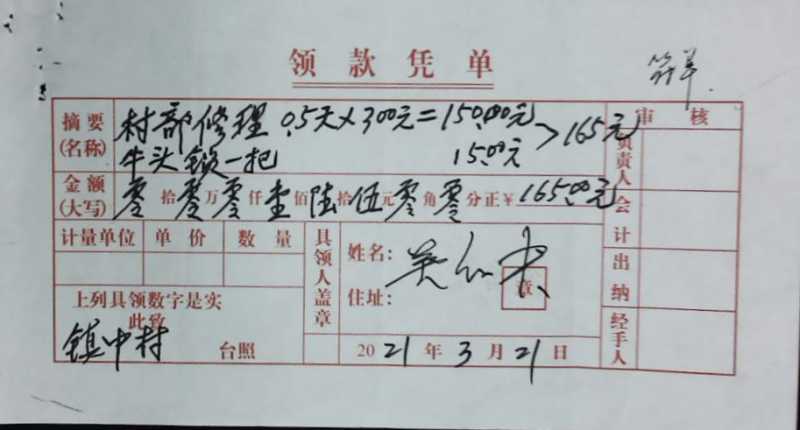 领款凭单
摘要 村部修理 0.5天×300元=150.00元 >165元
(名称) 牛头锁一把 15.00元
审核
金额 零拾零万零仟壹佰陆拾伍元零角零分正¥165.00元
(大写)
负责人
会计
出纳
经手人
计量单位 单价 数量
具领人盖章
姓名:
住址:
章
上列具领数字是实
此致
镇中村 台照
2021年3月21日